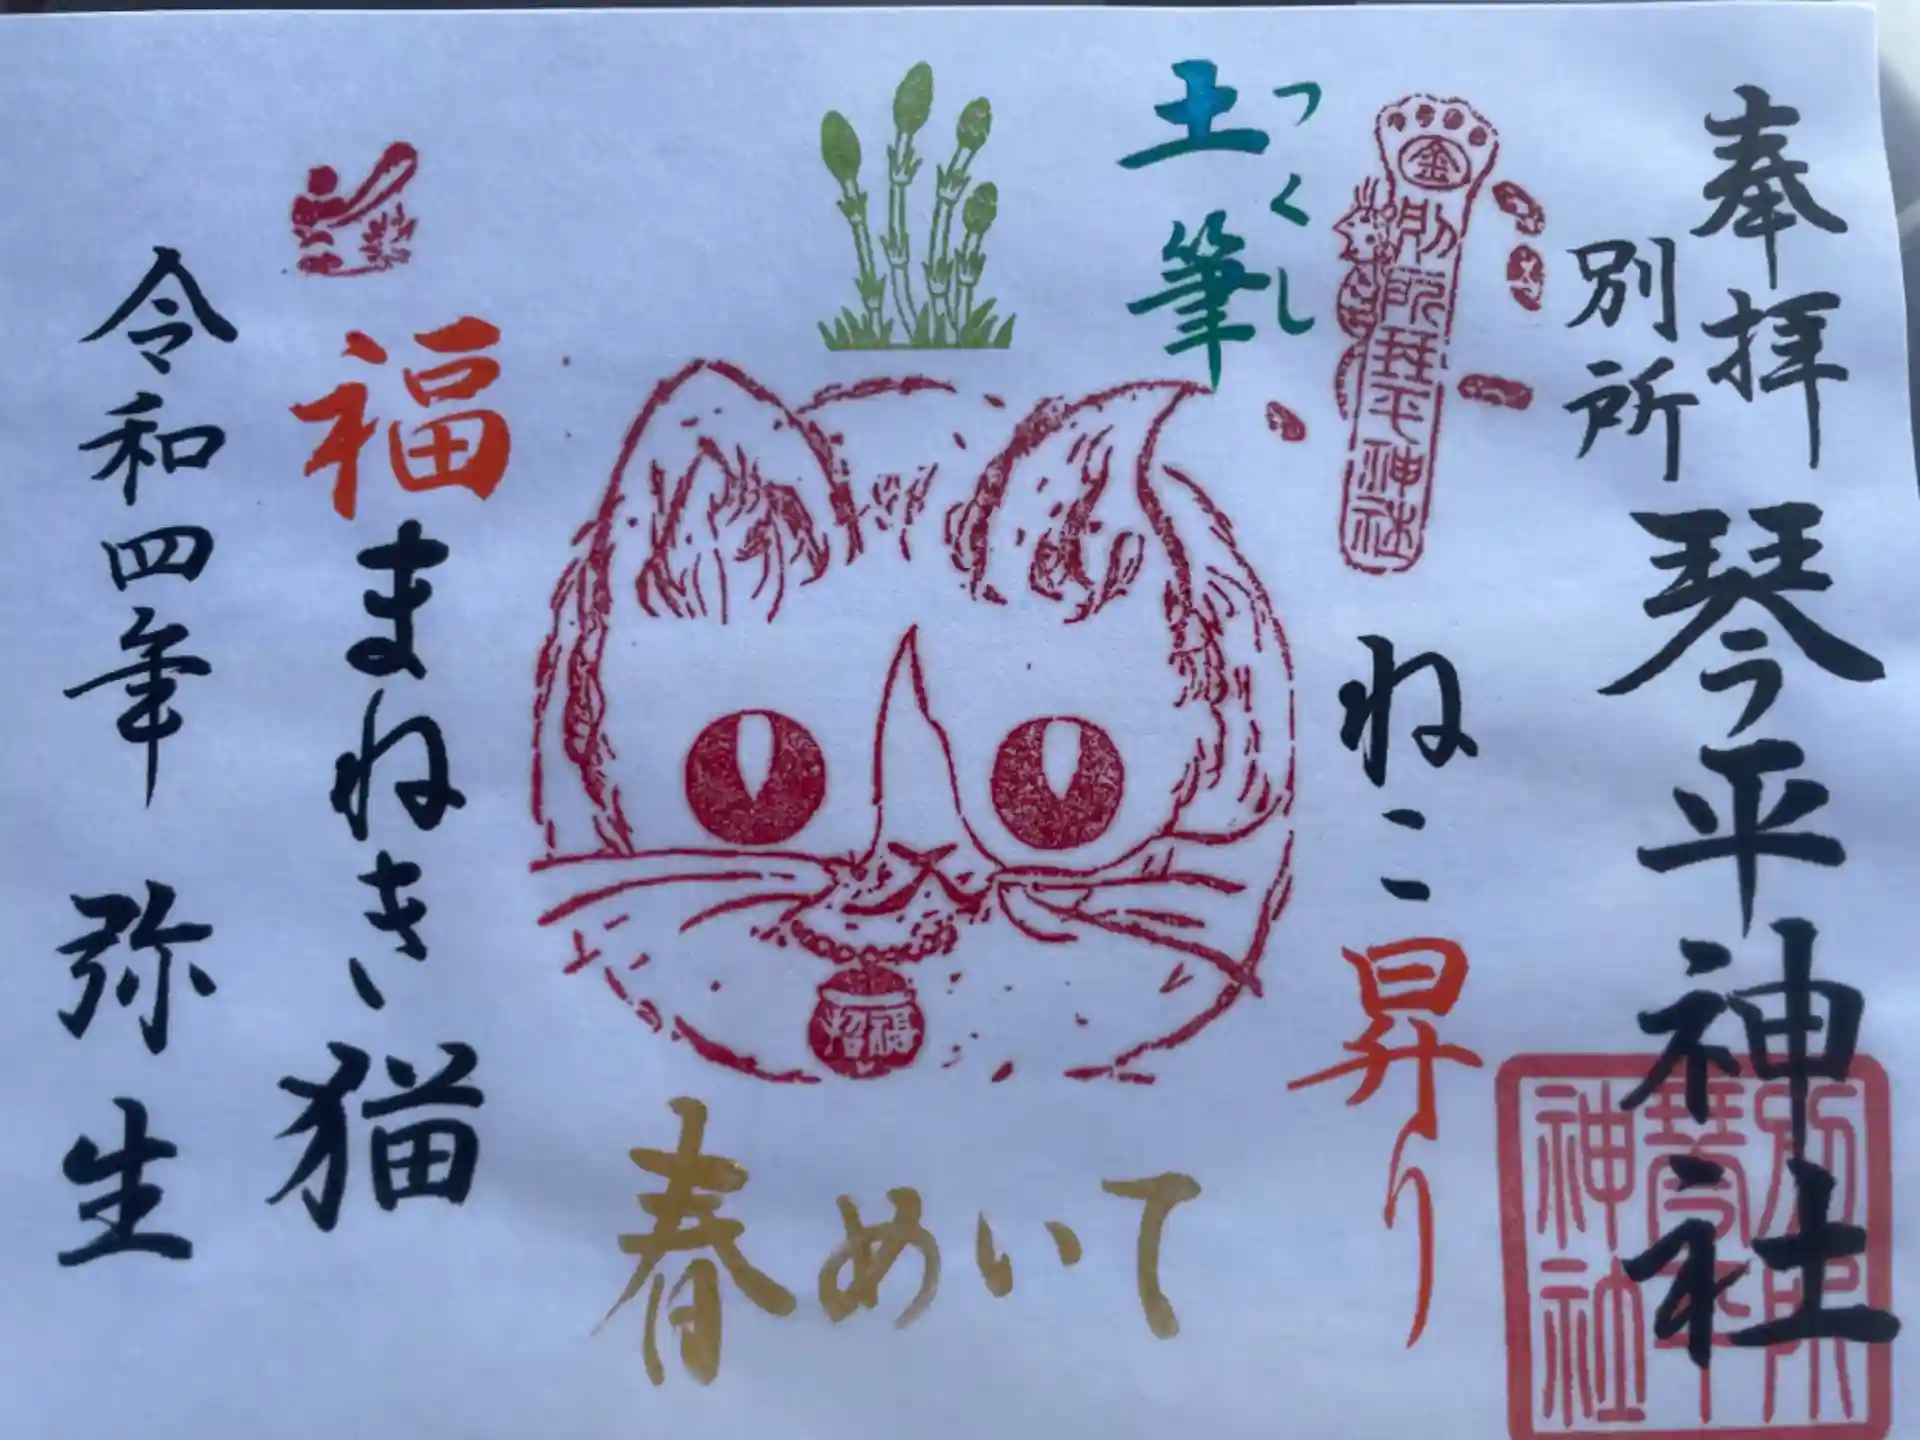 奉拝
別所
琴平神社
別所琴平神社
金
別所琴平神社
つくし
土筆
ねこ昇り
招福
春めいて
福まねき猫
令和四年 弥生